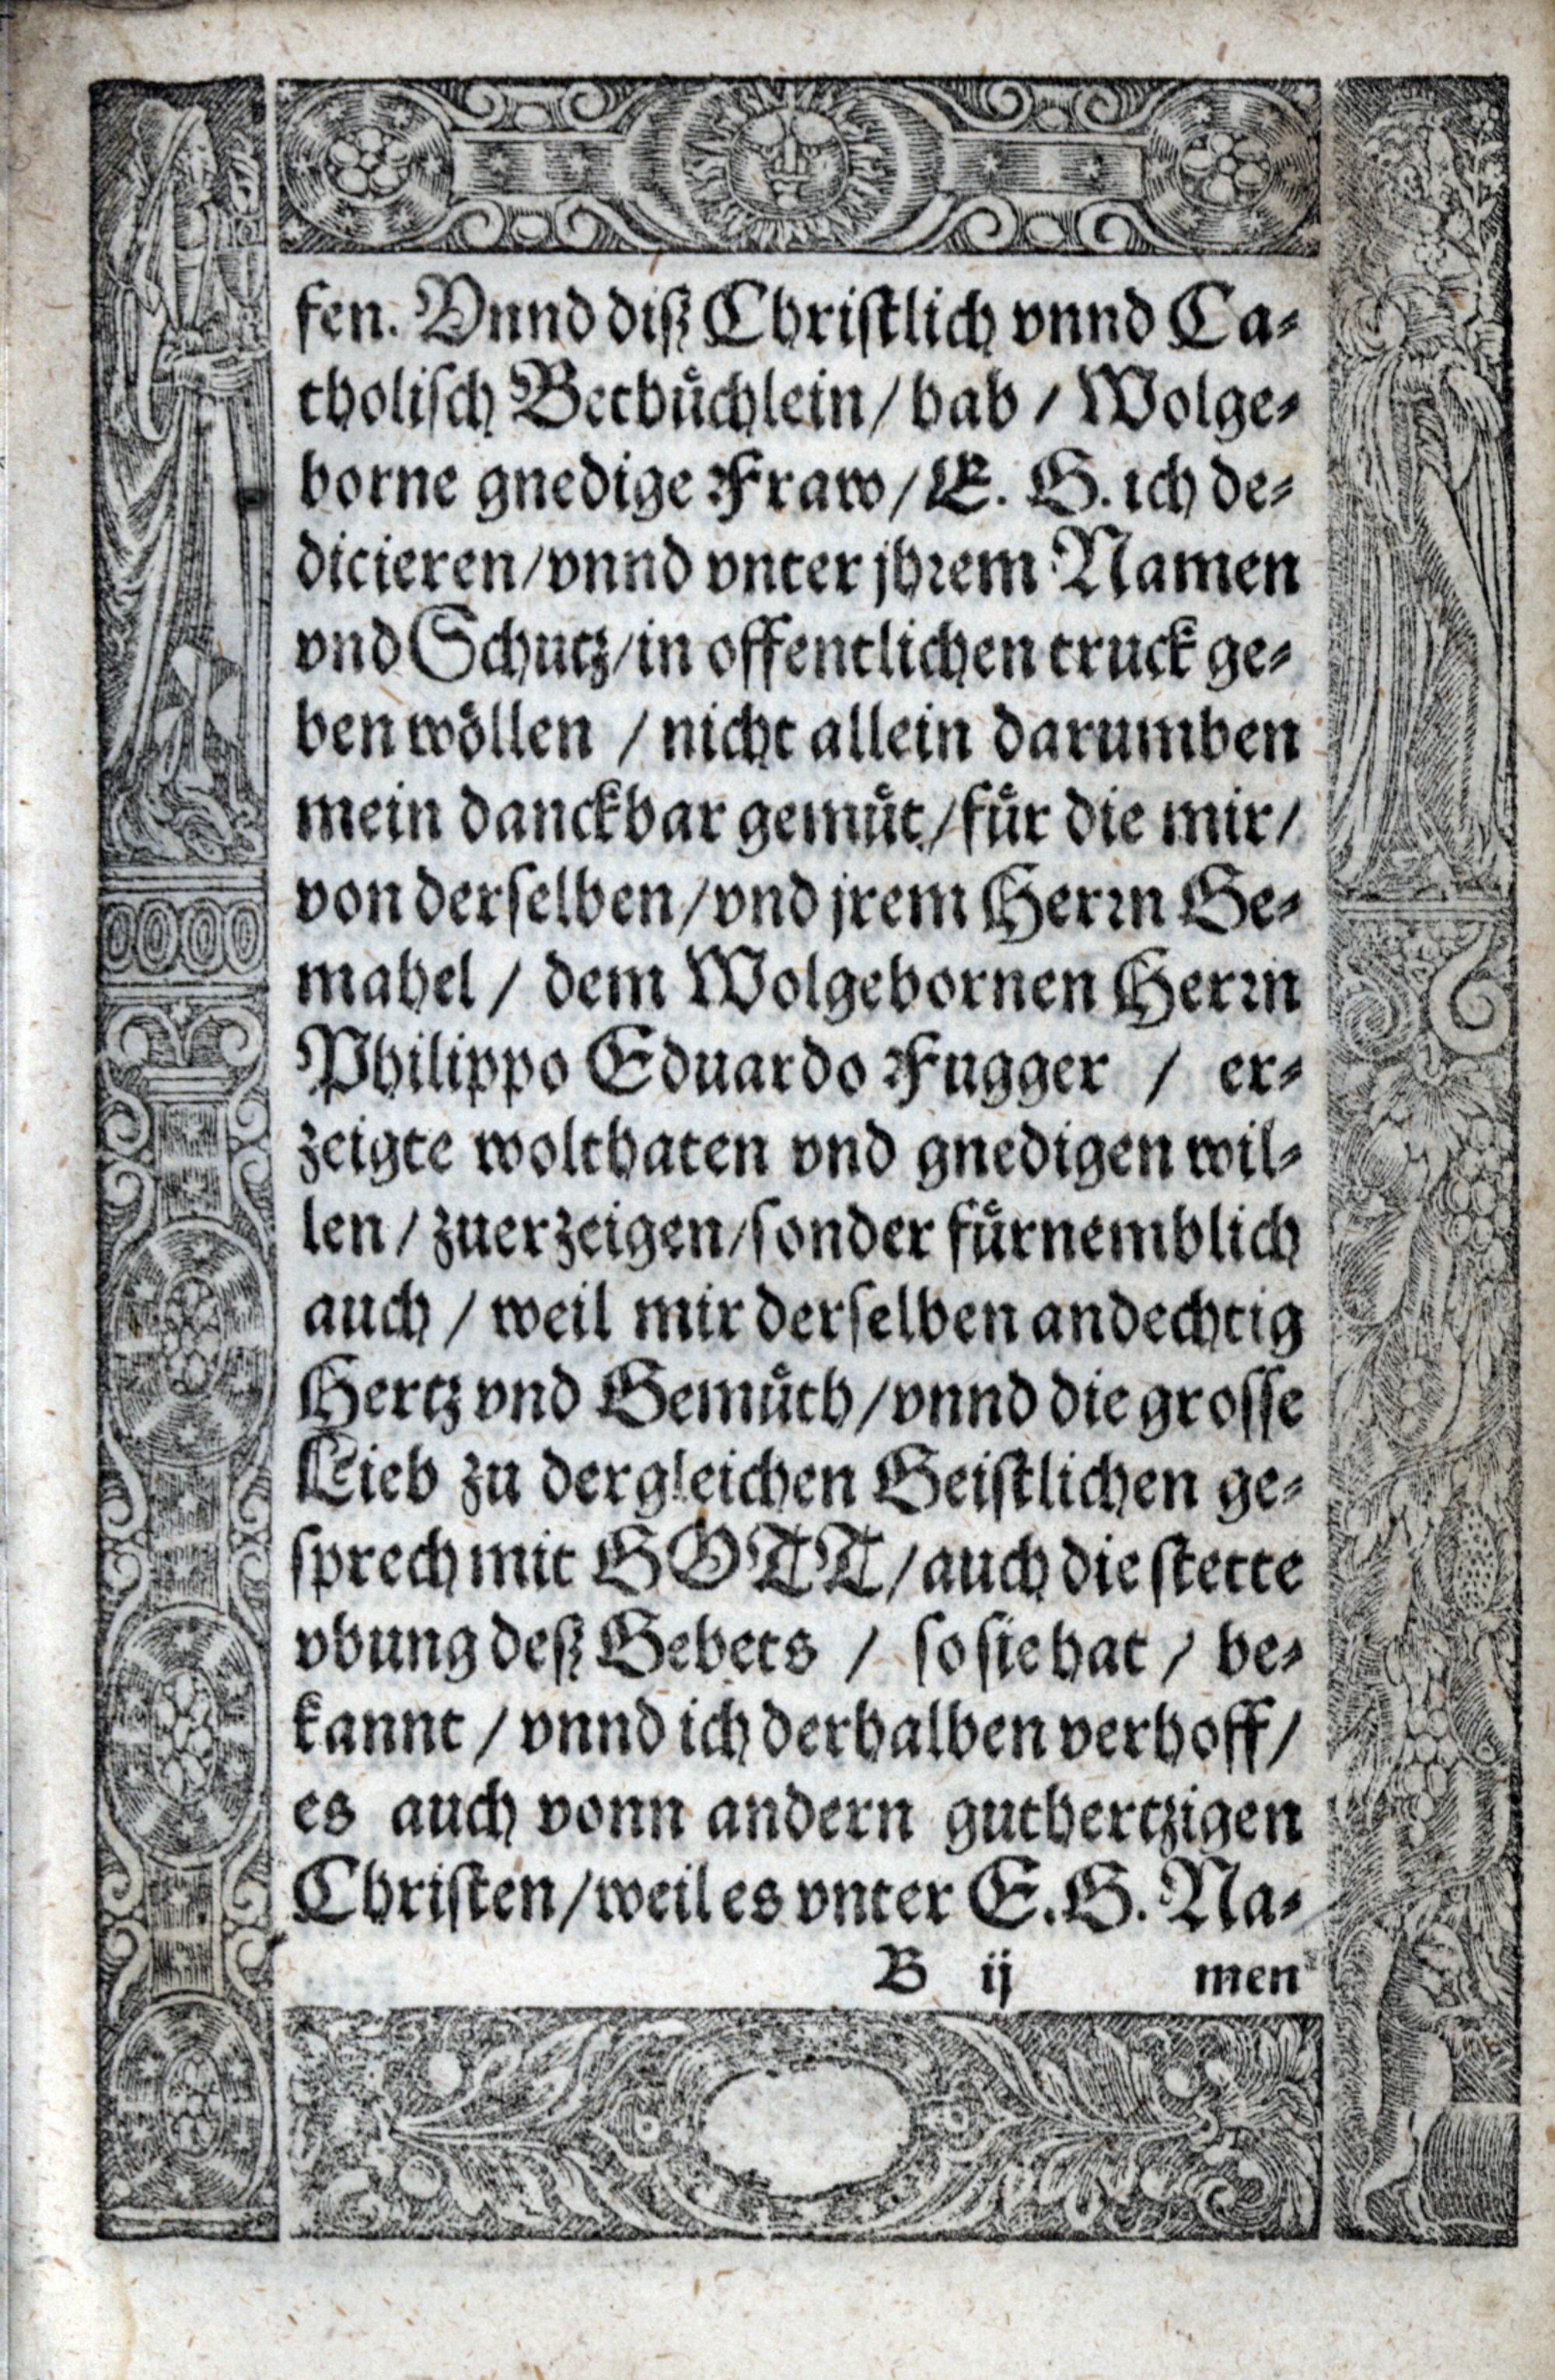 fen. Vnnd diß Christlich vnnd Ca⸗
tholisch Betbuͤchlein / hab / Wolge⸗
borne gnedige Fraw / E. G. ich de⸗
dicieren / vnnd vnter jhrem Namen
vnd Schutz / in offentlichen truck ge⸗
ben woͤllen / nicht allein darumben
mein danckbar gemuͤt / fuͤr die mir /
von derselben / vnd jrem Herrn Ge⸗
mahel / dem Wolgebornen Herrn
Philippo Eduardo Fugger / er⸗
zeigte wolthaten vnd gnedigen wil⸗
len / zuerzeigen / sonder fuͤrnemblich
auch / weil mir derselben andechtig
Hertz vnd Gemuͤth / vnnd die grosse
Lieb zu dergleichen Geistlichen ge⸗
sprech mit GOTT / auch die stette
vbung deß Gebets / so sie hat / be⸗
kannt / vnnd ich derhalben verhoff /
es auch vonn andern guthertzigen
Christen / weil es vnter E. G. Na⸗
B ij men